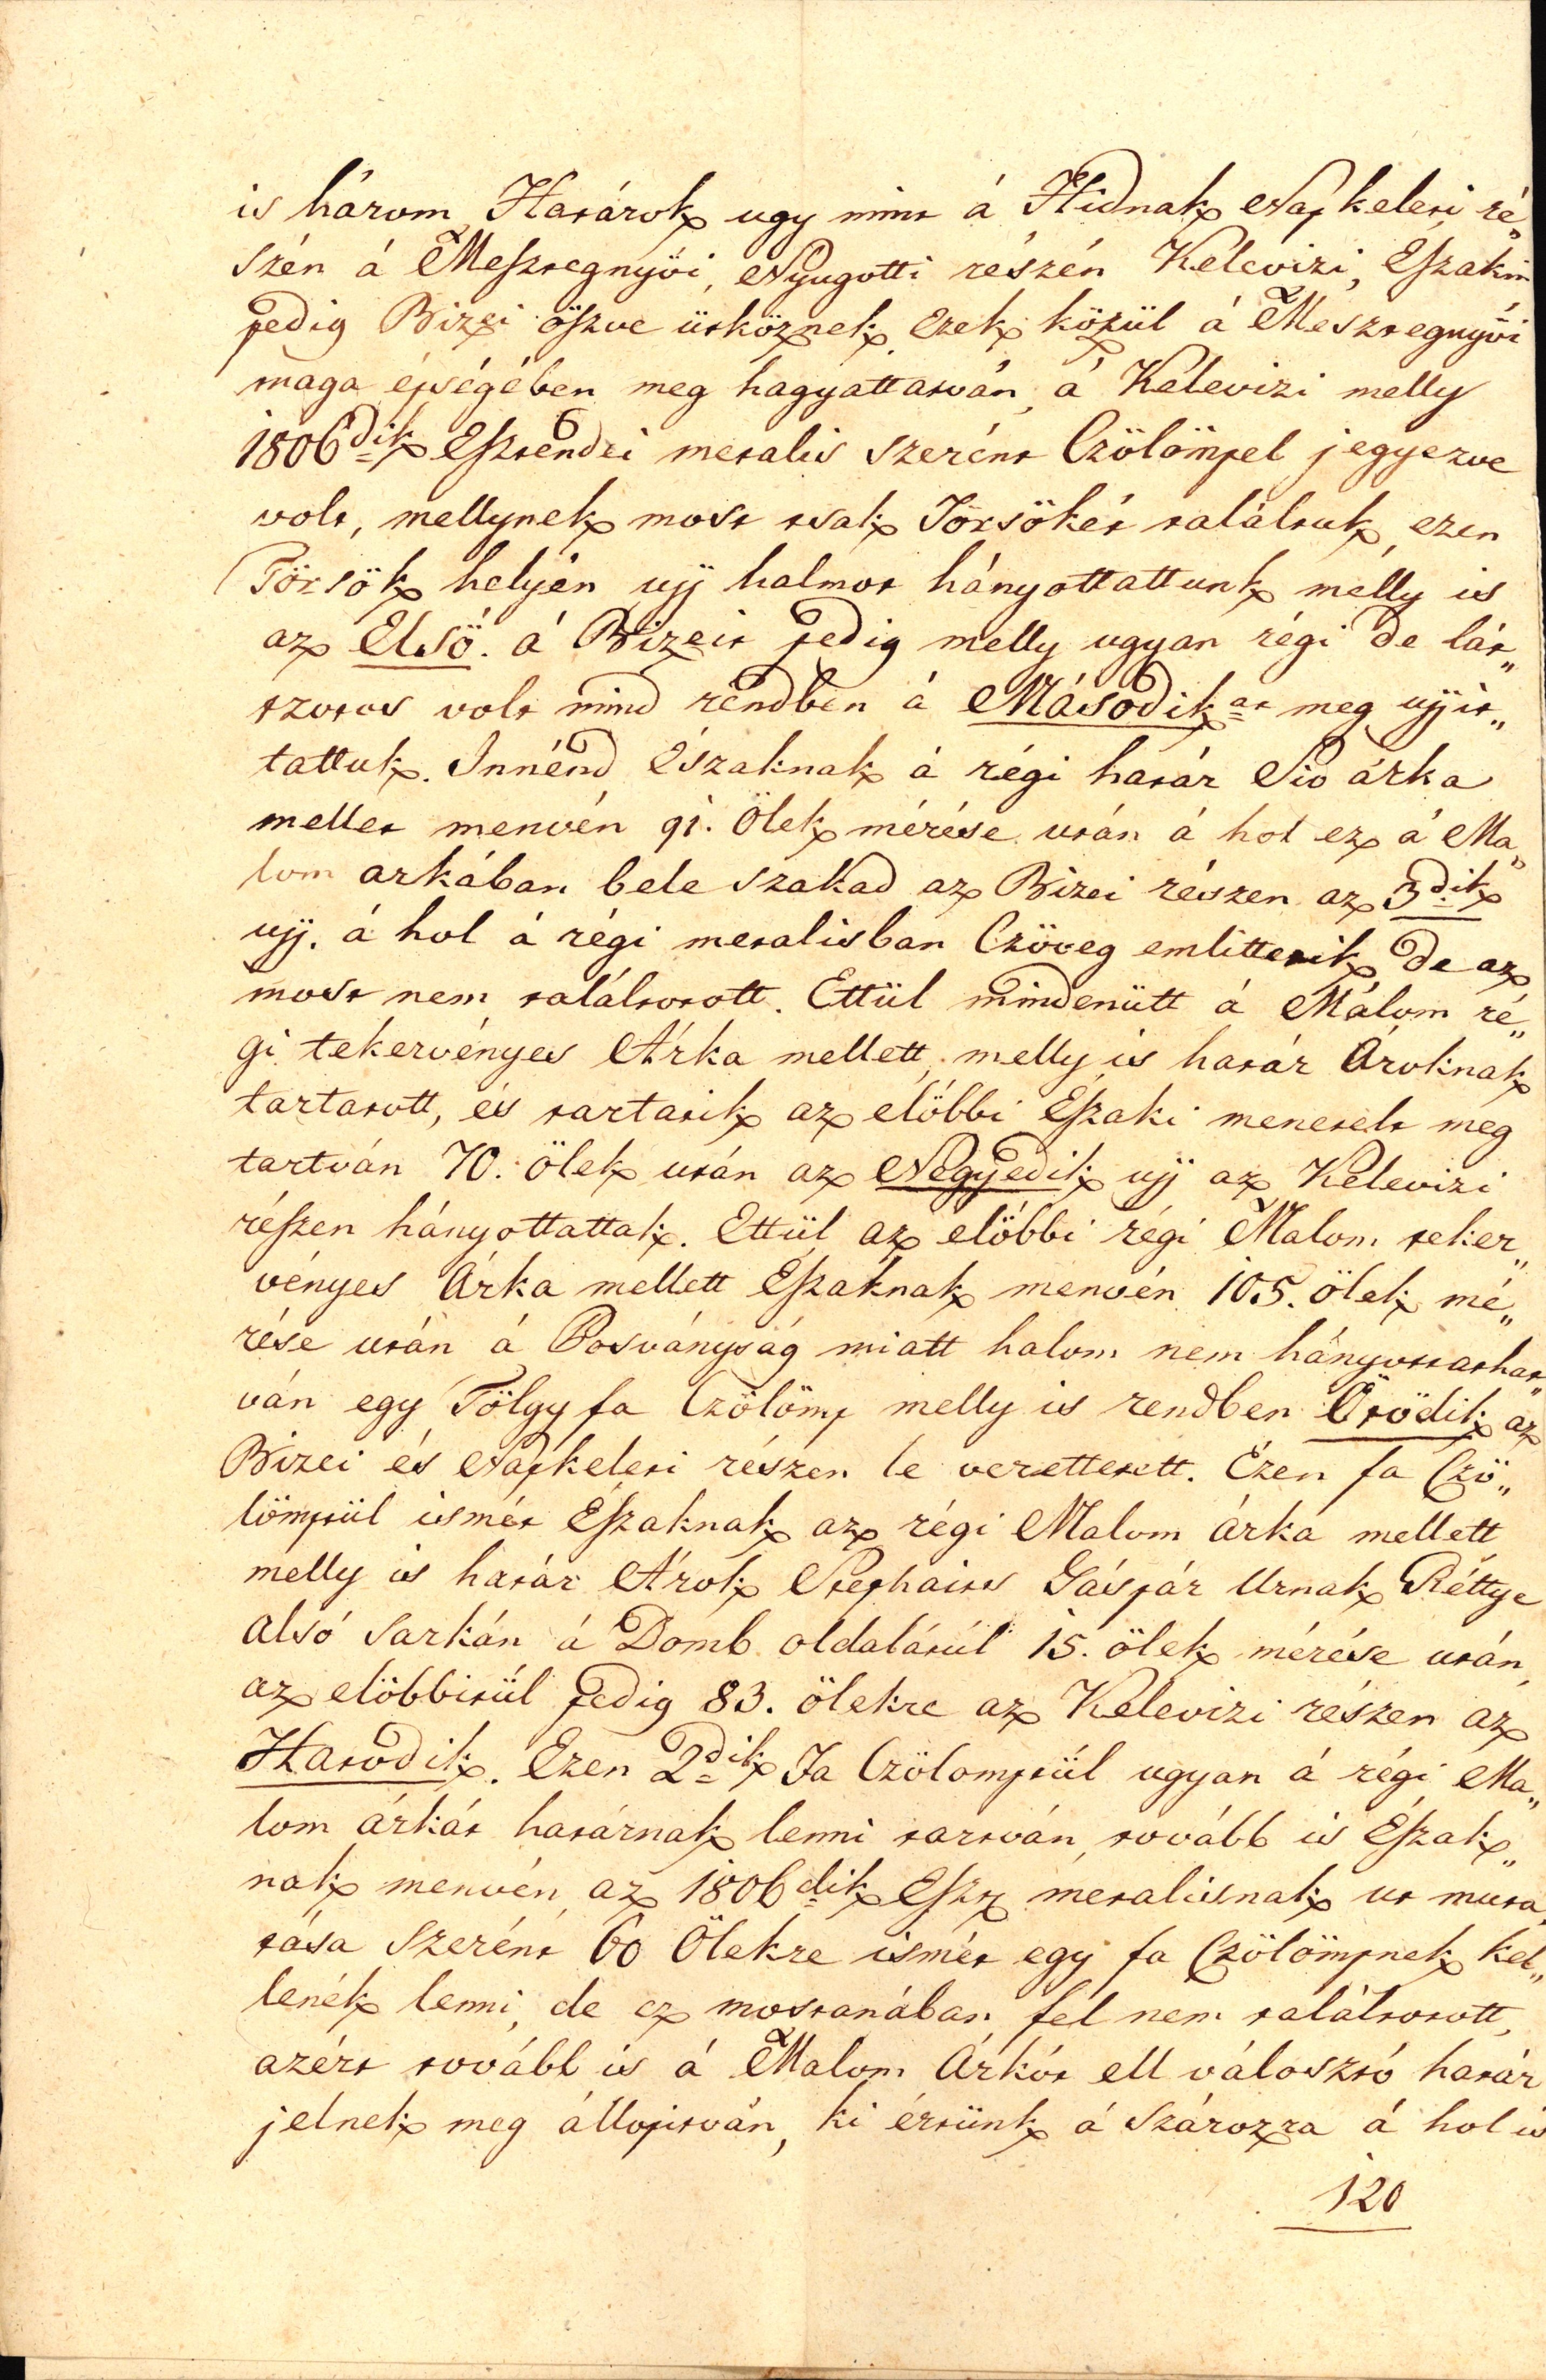 is három Határok ugy mint á Hidnak Napkeleti ré„
szén á Mesztegnyöi, Nyugotti részén Kelevizi, Északin
pedig Bizei öszve ütköznek. Ezek közül á Mesztegnyöi
maga épségében meg hagyattatván, á Kelevizi melly
1806dik Esztendei metalis szerént Czölömpel jegyezve
volt, mellynek most tsak Törsökét találtuk, ezen
Törsök helyén ujj halmot hányottattunk melly is
az Elsö. á Bizeit pedig melly ugyan régi de lát„
szotos volt mind rendben á Másodikat meg ujjit„
tattuk. Innénd északnak á régi határ Sio árka
mellet menvén 91. Ölek mérése után á hol ez á Ma„
lom arkában bele szakad az Bizei részen az 3dik
ujj. á hol á régi metalisban Czöveg emlittetik de az
most nem találtatott. Ettül mindenütt á Malom ré„
gi tekervényes Árka mellett, melly is határ Ároknak
tartatott, és tartatik az elöbbi Északi menetelt meg
tartván 70. ölek után az Negyedik ujj az Kelevizi
részen hányottattak. Ettül az elöbbi régi Malom teker„
vényes Árka mellett Északnak menvén 105. ölek mé„
rése után á Posványság miatt halom nem hányottathat„
ván egy Tölgy fa Czölömp melly is rendben Ötödik az
Bizei és Napkeleti részen le verettetett. Ezen fa Czö„
lömptül ismét Északnak az régi Malom árka mellett
melly is határ Árok Stephaits Gáspár Urnak Réttye
alsó sarkán á Domb oldalátúl 15. ölek mérése után,
az elöbbitül pedig 83. ölekre az Kelevizi részen az
Hatodik. Ezen 2dik Fa Czölomptül ugyan á régi Ma„
lom árkát határnak lenni tartván, tovább is Észak„
nak menvén, az 1806dik Eszt metalisnak ut muta„
tása szerént 60 Ölekre ismét egy fa Czölömpnek kel„
lenék lenni, de ez mostanában fel nem találtatott,
azért tovább is á Malom Árkót ell válosztó határ
jelnek meg állopitván, ki értünk á szározra á hol is
120